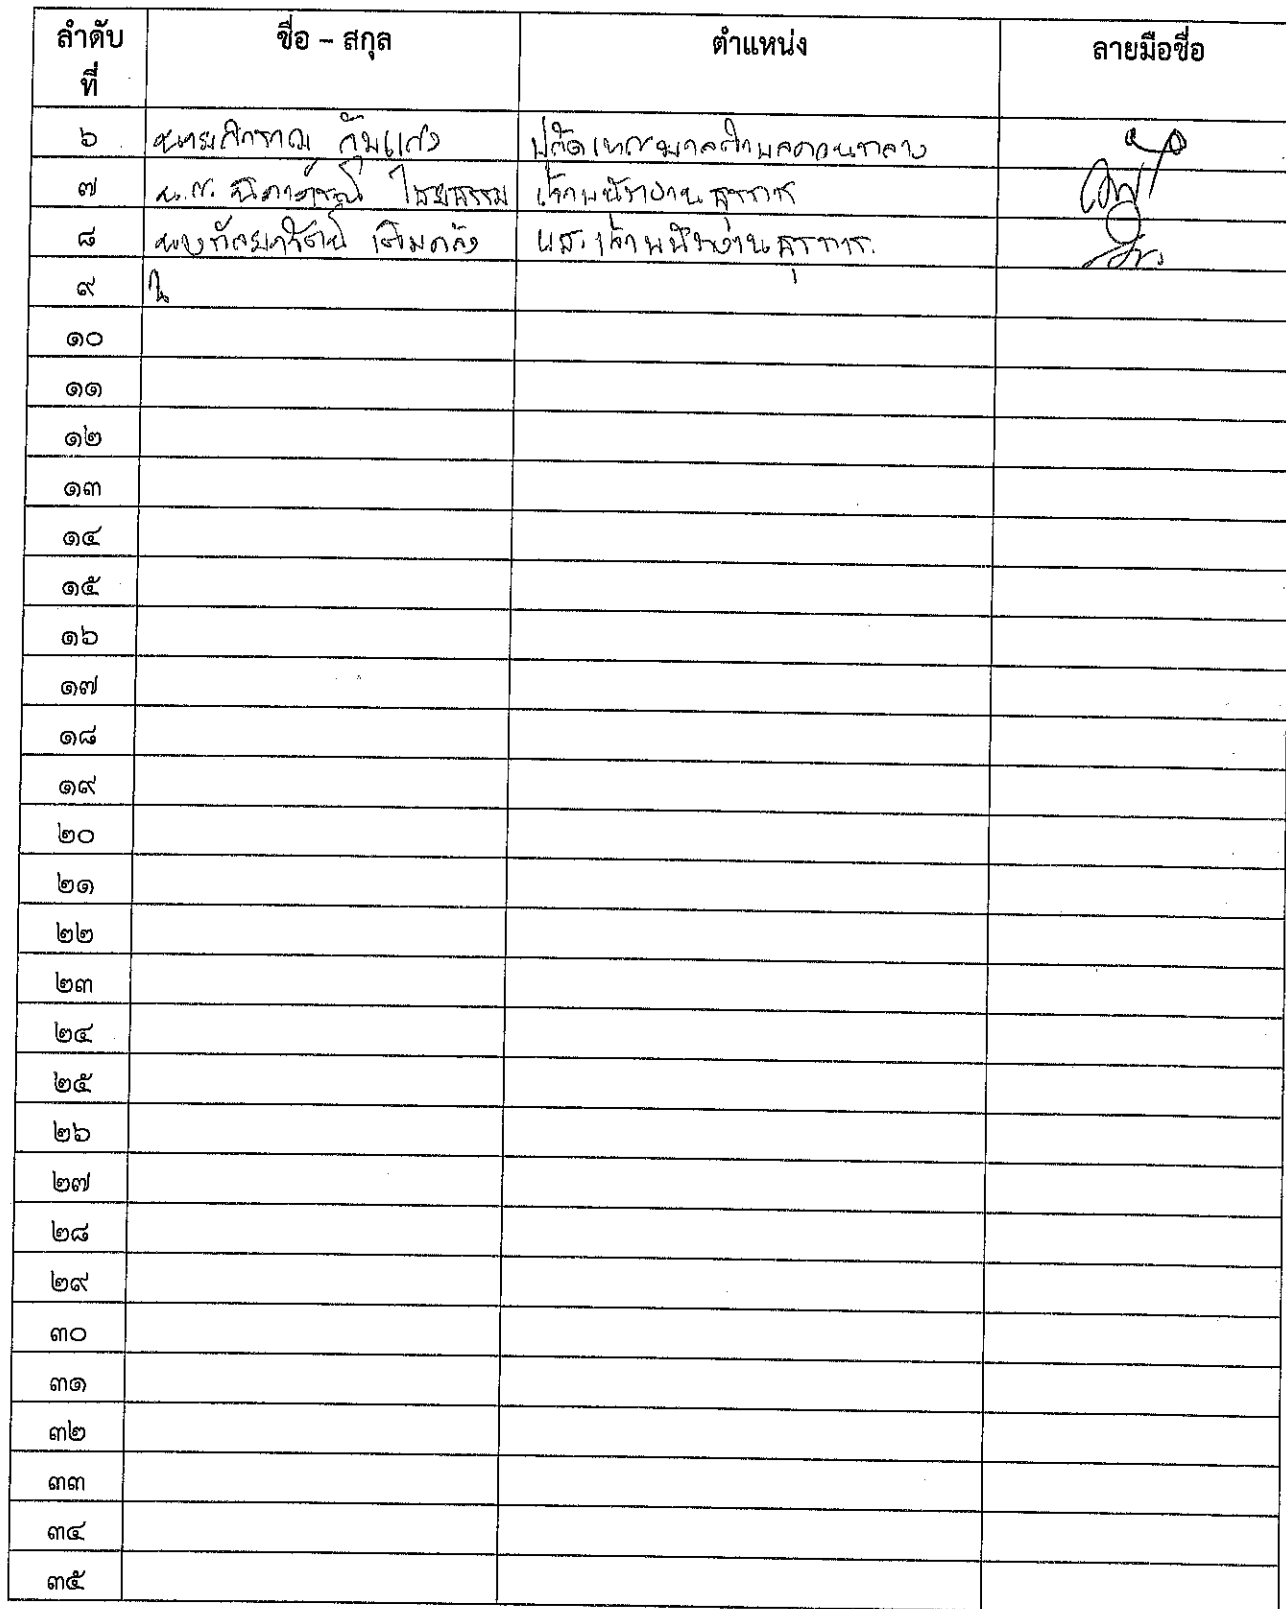 ลำดับที่ ชื่อ – สกุล ตำแหน่ง ลายมือชื่อ
๖ ปลัดเทศบาลตำบลดอนกลาง
๗ น.ส. นิภาภรณ์ ไชยธรรม เจ้าพนักงานธุรการ
๘ ผช.เจ้าพนักงานธุรการ.
๙
๑๐
๑๑
๑๒
๑๓
๑๔
๑๕
๑๖
๑๗
๑๘
๑๙
๒๐
๒๑
๒๒
๒๓
๒๔
๒๕
๒๖
๒๗
๒๘
๒๙
๓๐
๓๑
๓๒
๓๓
๓๔
๓๕